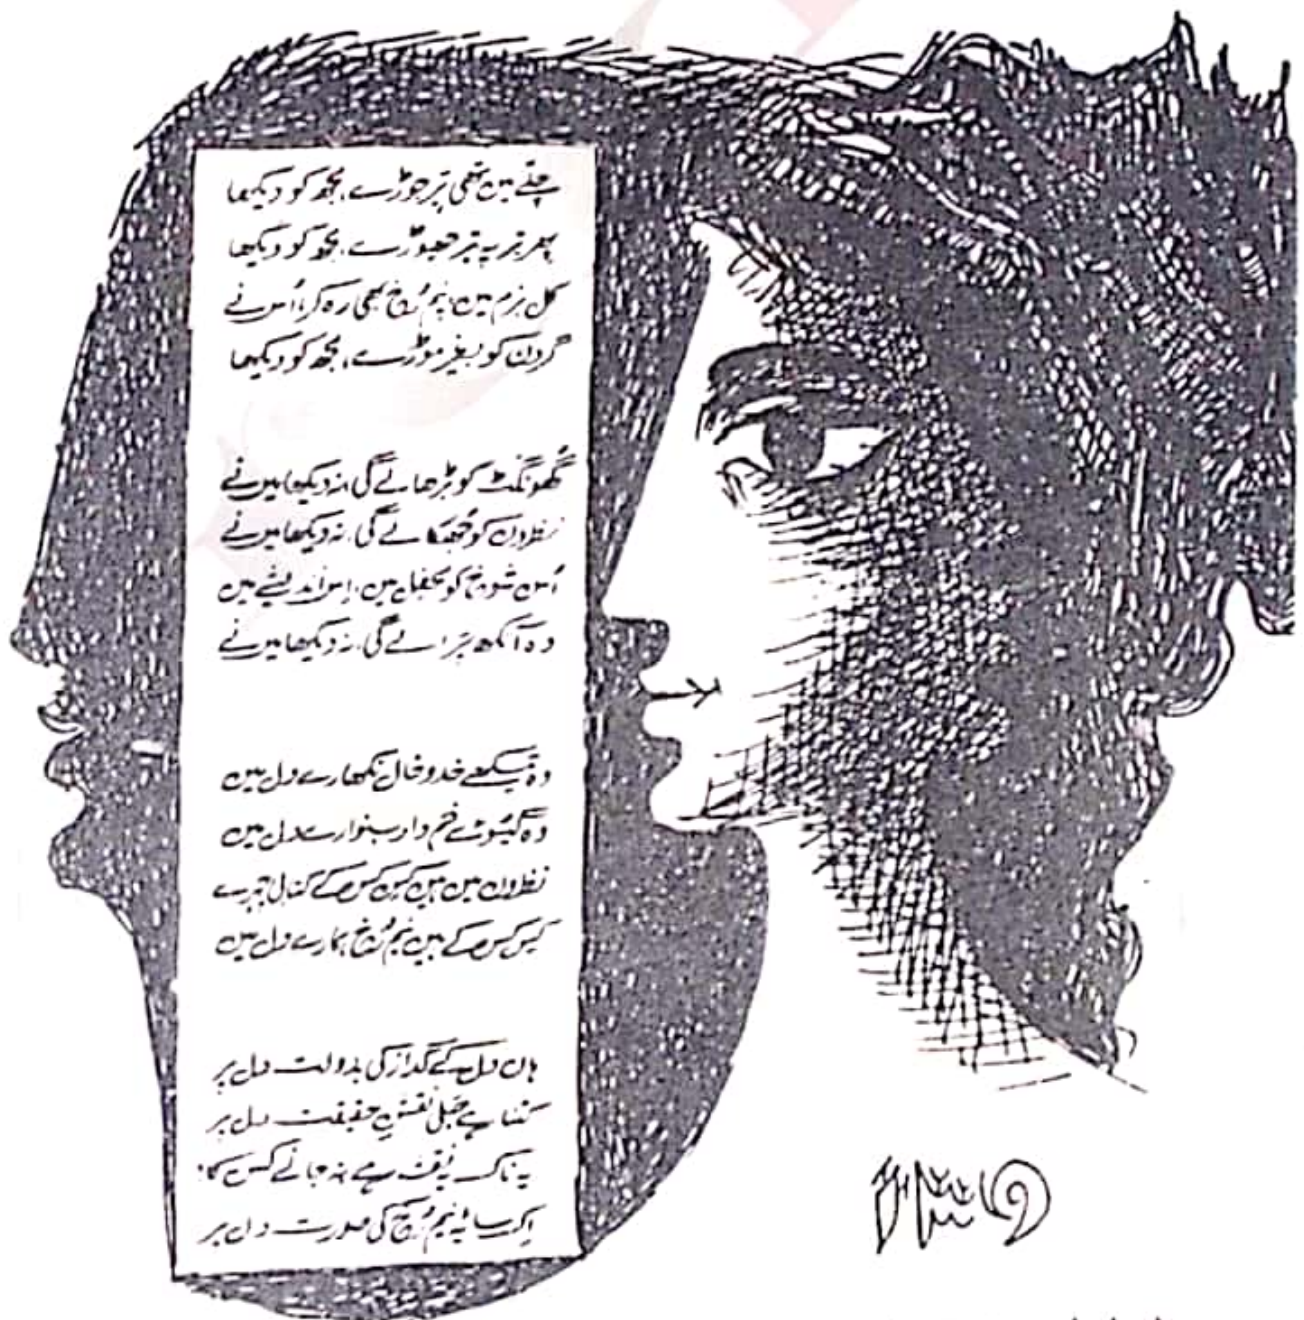 چلّے میں تھی تیر جوڑے، مجھ کو دیکھا
پھر تیر پہ تیر چھوڑے، مجھ کو دیکھا
کل بزم میں، نیم رُخ بھی رہ کر، اُس نے
گردن کو بغیر موڑے، مجھ کو دیکھا
گھونگٹ کو بڑھا لے گی، نہ دیکھا میں نے
نظروں کو جُھکا لے گی، نہ دیکھا میں نے
اُس شوخ کو محفل میں، اِس اندیشے میں
وہ آنکھ چُرا لے گی، نہ دیکھا میں نے
وہ تیکھے خدوخال نکھارے دل میں
وہ گیسوئے خم دار سنوارے دل میں
نظروں میں ہیں کس کس کے کتابی چہرے
کس کس کے ہیں نیم رُخ ہمارے دل میں
ہاں دل کے گداز کی بدولت دل پر
کتنا ہے جلی نقشِ حقیقت دل پر
یہ ناک نقشہ ہے نہ جانے کس کا
اِک سایۂ نیم رُخ کی صورت دل پر